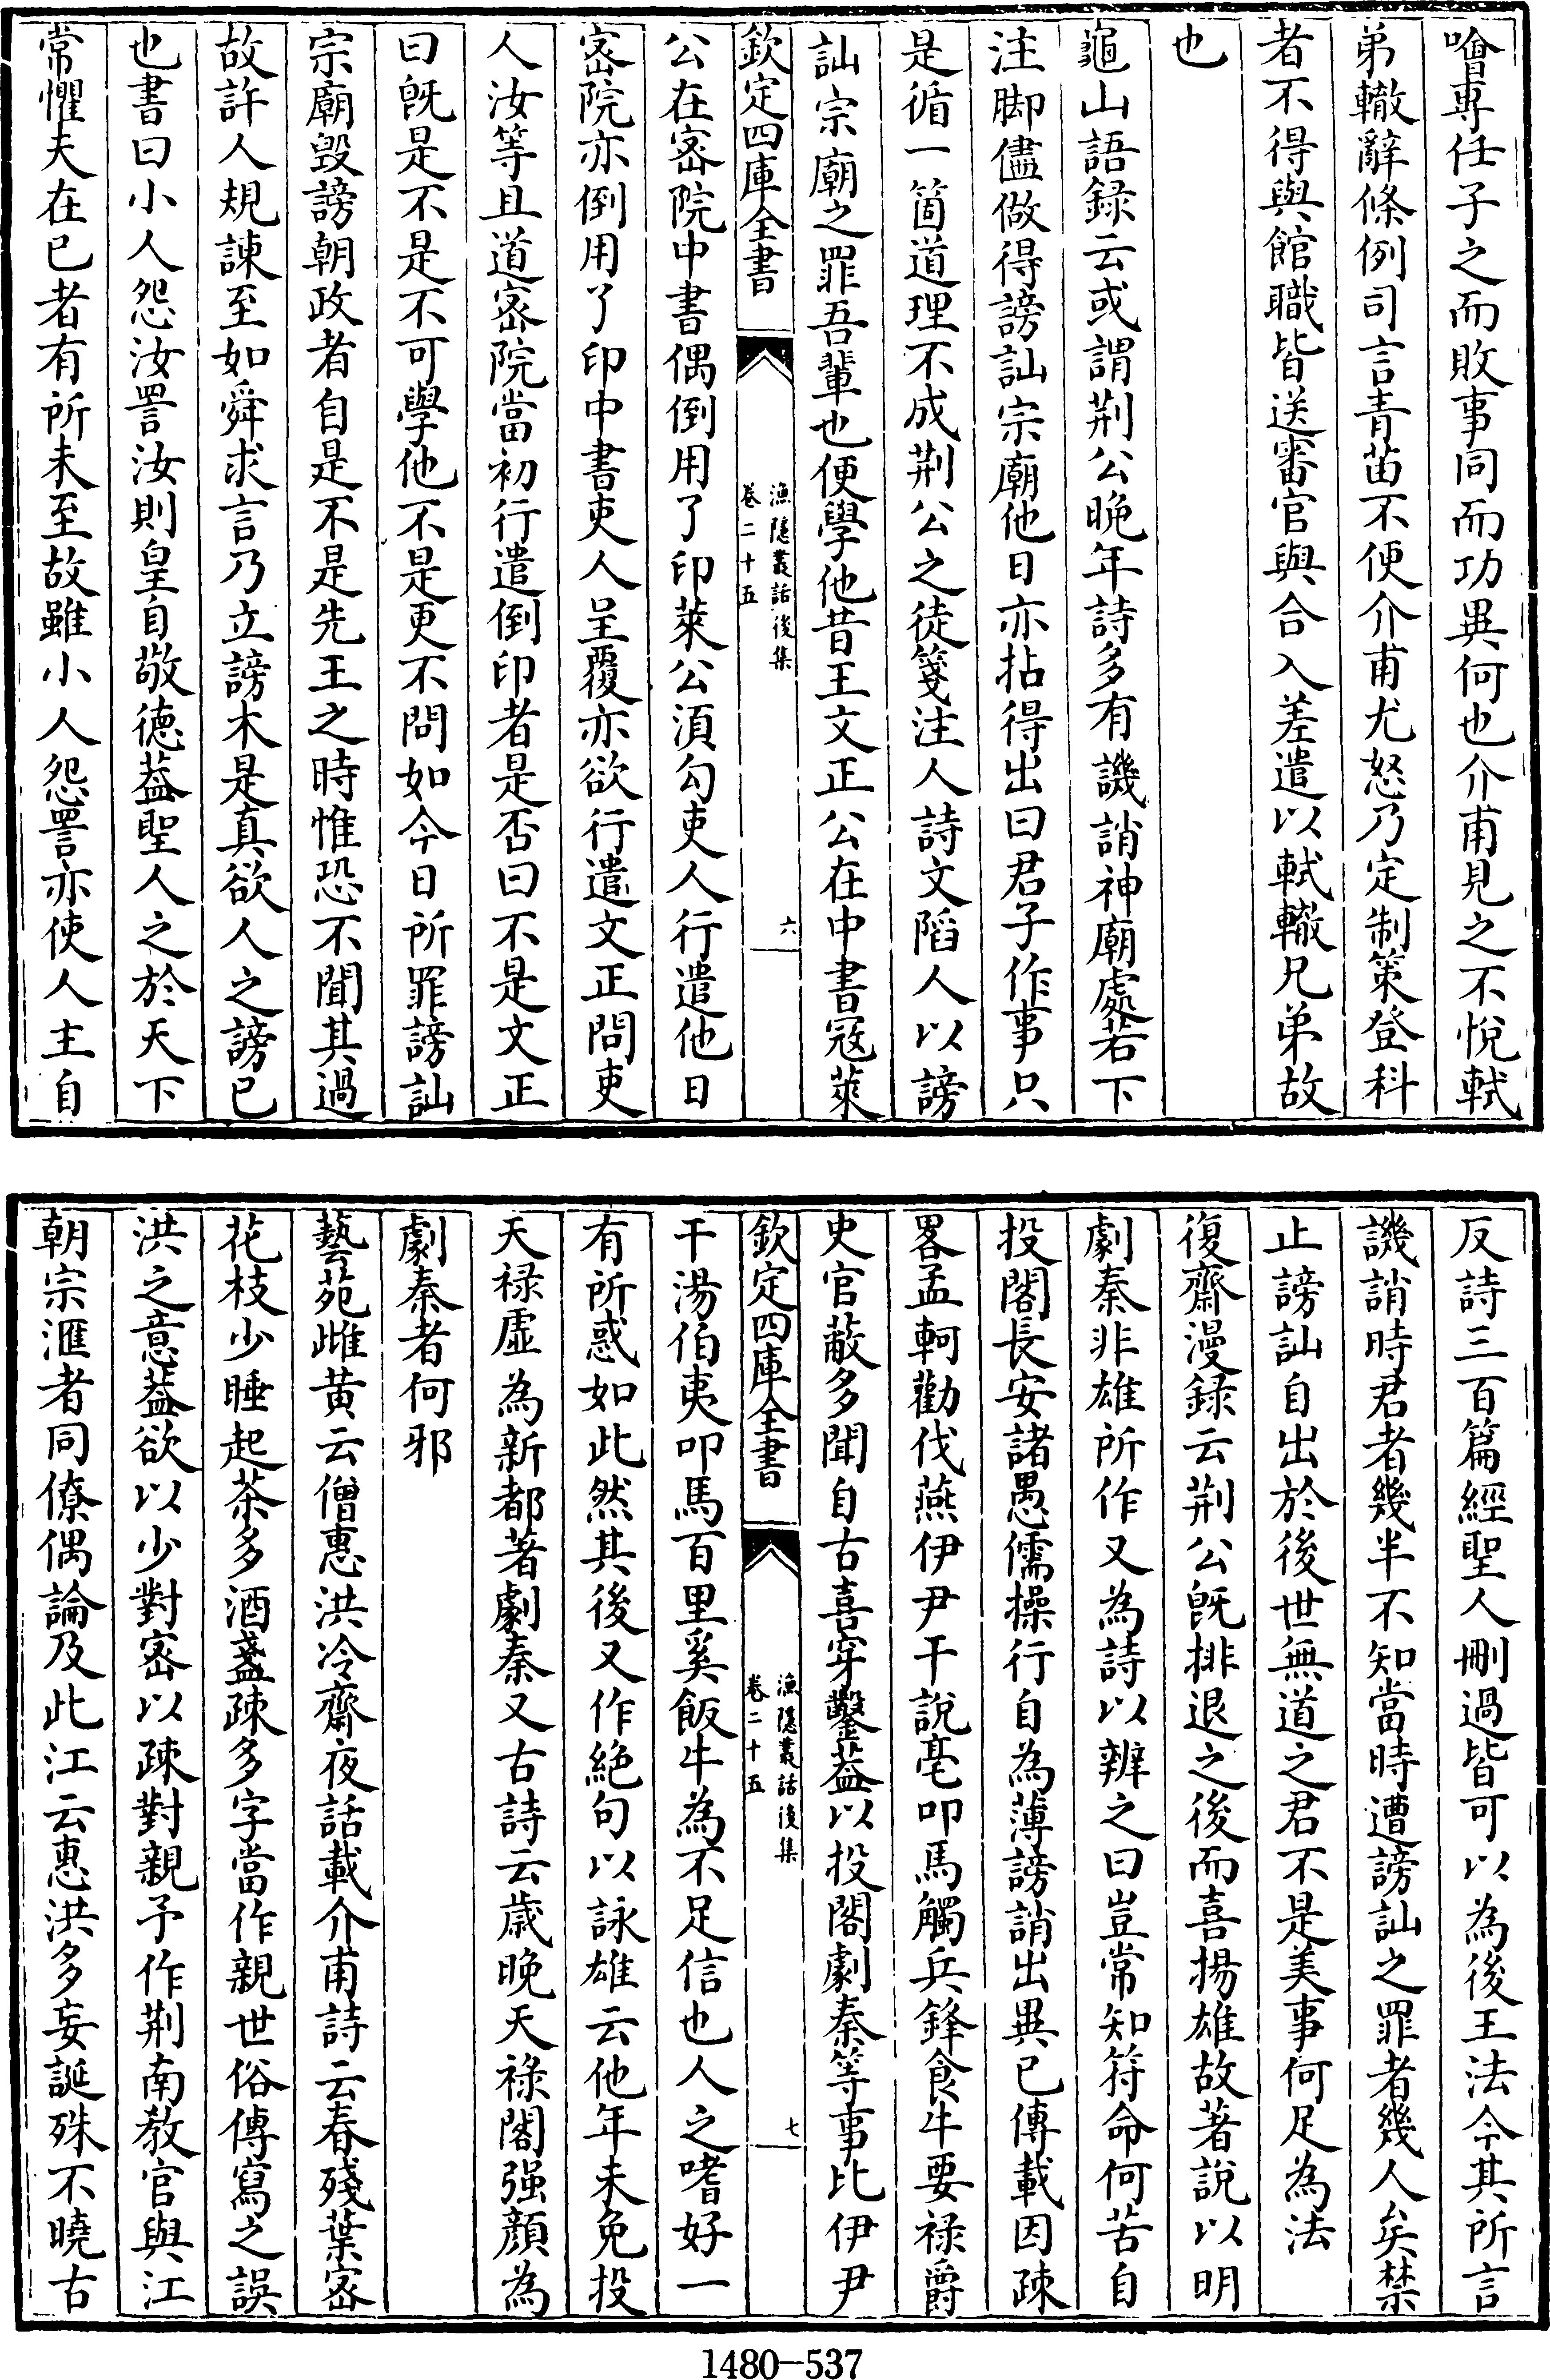 噲專任子之而敗事同而功異何也介甫見之不悅軾
弟轍辭條例司言青苗不便介甫尤怒乃定制策登科
者不得與館職皆送審官與合入差遣以軾轍兄弟故
也
龜山語録云或謂荆公晚年詩多有譏誚神廟處若下
注脚儘做得謗訕宗廟他日亦拈得出曰君子作事只
是循一箇道理不成荆公之徒箋注人詩文䧟人以謗
訕宗廟之罪吾輩也便學他昔王文正公在中書寇萊
欽定四庫全書
漁隠叢話後集
卷二十五
六
公在宻院中書偶倒用了印萊公湏勾吏人行遣他日
宻院亦倒用了印中書吏人呈覆亦欲行遣文正問吏
人汝等且道宻院當初行遣倒印者是否曰不是文正
曰旣是不是不可學他不是更不問如今日所罪謗訕
宗廟毁謗朝政者自是不是先王之時惟恐不聞其過
故許人規諫至如舜求言乃立謗木是真欲人之謗已
也書曰小人怨汝詈汝則皇自敬德葢聖人之於天下
常懼夫在已者有所未至故雖小人怨詈亦使人主自
反詩三百篇經聖人刪過皆可以為後王法今其所言
譏誚時君者幾半不知當時遭謗訕之罪者幾人矣禁
止謗訕自出於後世無道之君不是美事何足為法
復齋漫録云荆公旣排退之後而喜揚雄故著說以明
劇秦非雄所作又為詩以辨之曰豈常知符命何苦自
投閣長安諸愚儒操行自為薄謗誚出異已傳載因疎
畧孟軻勸伐燕伊尹干說亳叩馬觸兵鋒食牛要禄爵
史官蔽多聞自古喜穿鑿葢以投閣劇秦等事比伊尹
欽定四庫全書
漁隠叢話後集
卷二十五
七
干湯伯夷叩馬百里奚飯牛為不足信也人之嗜好一
有所惑如此然其後又作絶句以詠雄云他年未免投
天禄虚為新都著劇秦又古詩云歳晚天禄閣强顔為
劇秦者何邪
藝苑雌黄云僧惠洪冷齋夜話載介甫詩云春殘葉宻
花枝少睡起茶多酒盞疎多字當作親世俗傳寫之誤
洪之意葢欲以少對宻以疎對親予作荆南教官與江
朝宗滙者同僚偶論及此江云惠洪多妄誕殊不曉古
1480—537